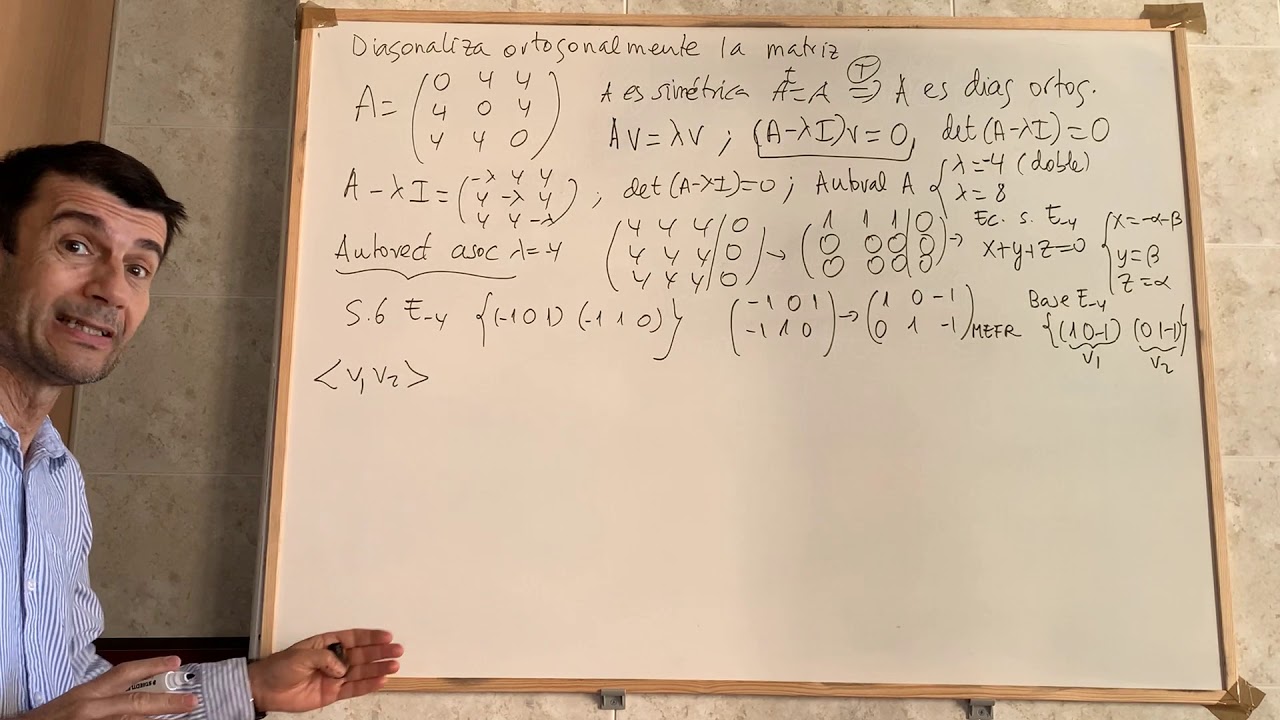 Diagonaliza ortogonalmente la matriz
A = (0 4 4
4 0 4
4 4 0)
A es simétrica ᵗA = A ⇒ (T) A es diag ortog.
Av = λv ; (A-λI)v = 0, det(A-λI) = 0
A - λI = (-λ 4 4
4 -λ 4
4 4 -λ) ; det(A-λI)=0 ; Autoval A { λ=-4 (doble)
λ = 8
Autovect asoc λ=-4
(4 4 4 | 0
4 4 4 | 0
4 4 4 | 0) → (1 1 1 | 0
0 0 0 | 0
0 0 0 | 0) →
Ec. s. E₋₄
x+y+z=0
{ x=-α-β
y=β
z=α
S.G E₋₄ {(-1 0 1) (-1 1 0)}
(-1 0 1
-1 1 0) → (1 0 -1
0 1 -1) MEFR
Base E₋₄
{(1 0 -1) (0 1 -1)}
v₁ v₂
<v₁ v₂>